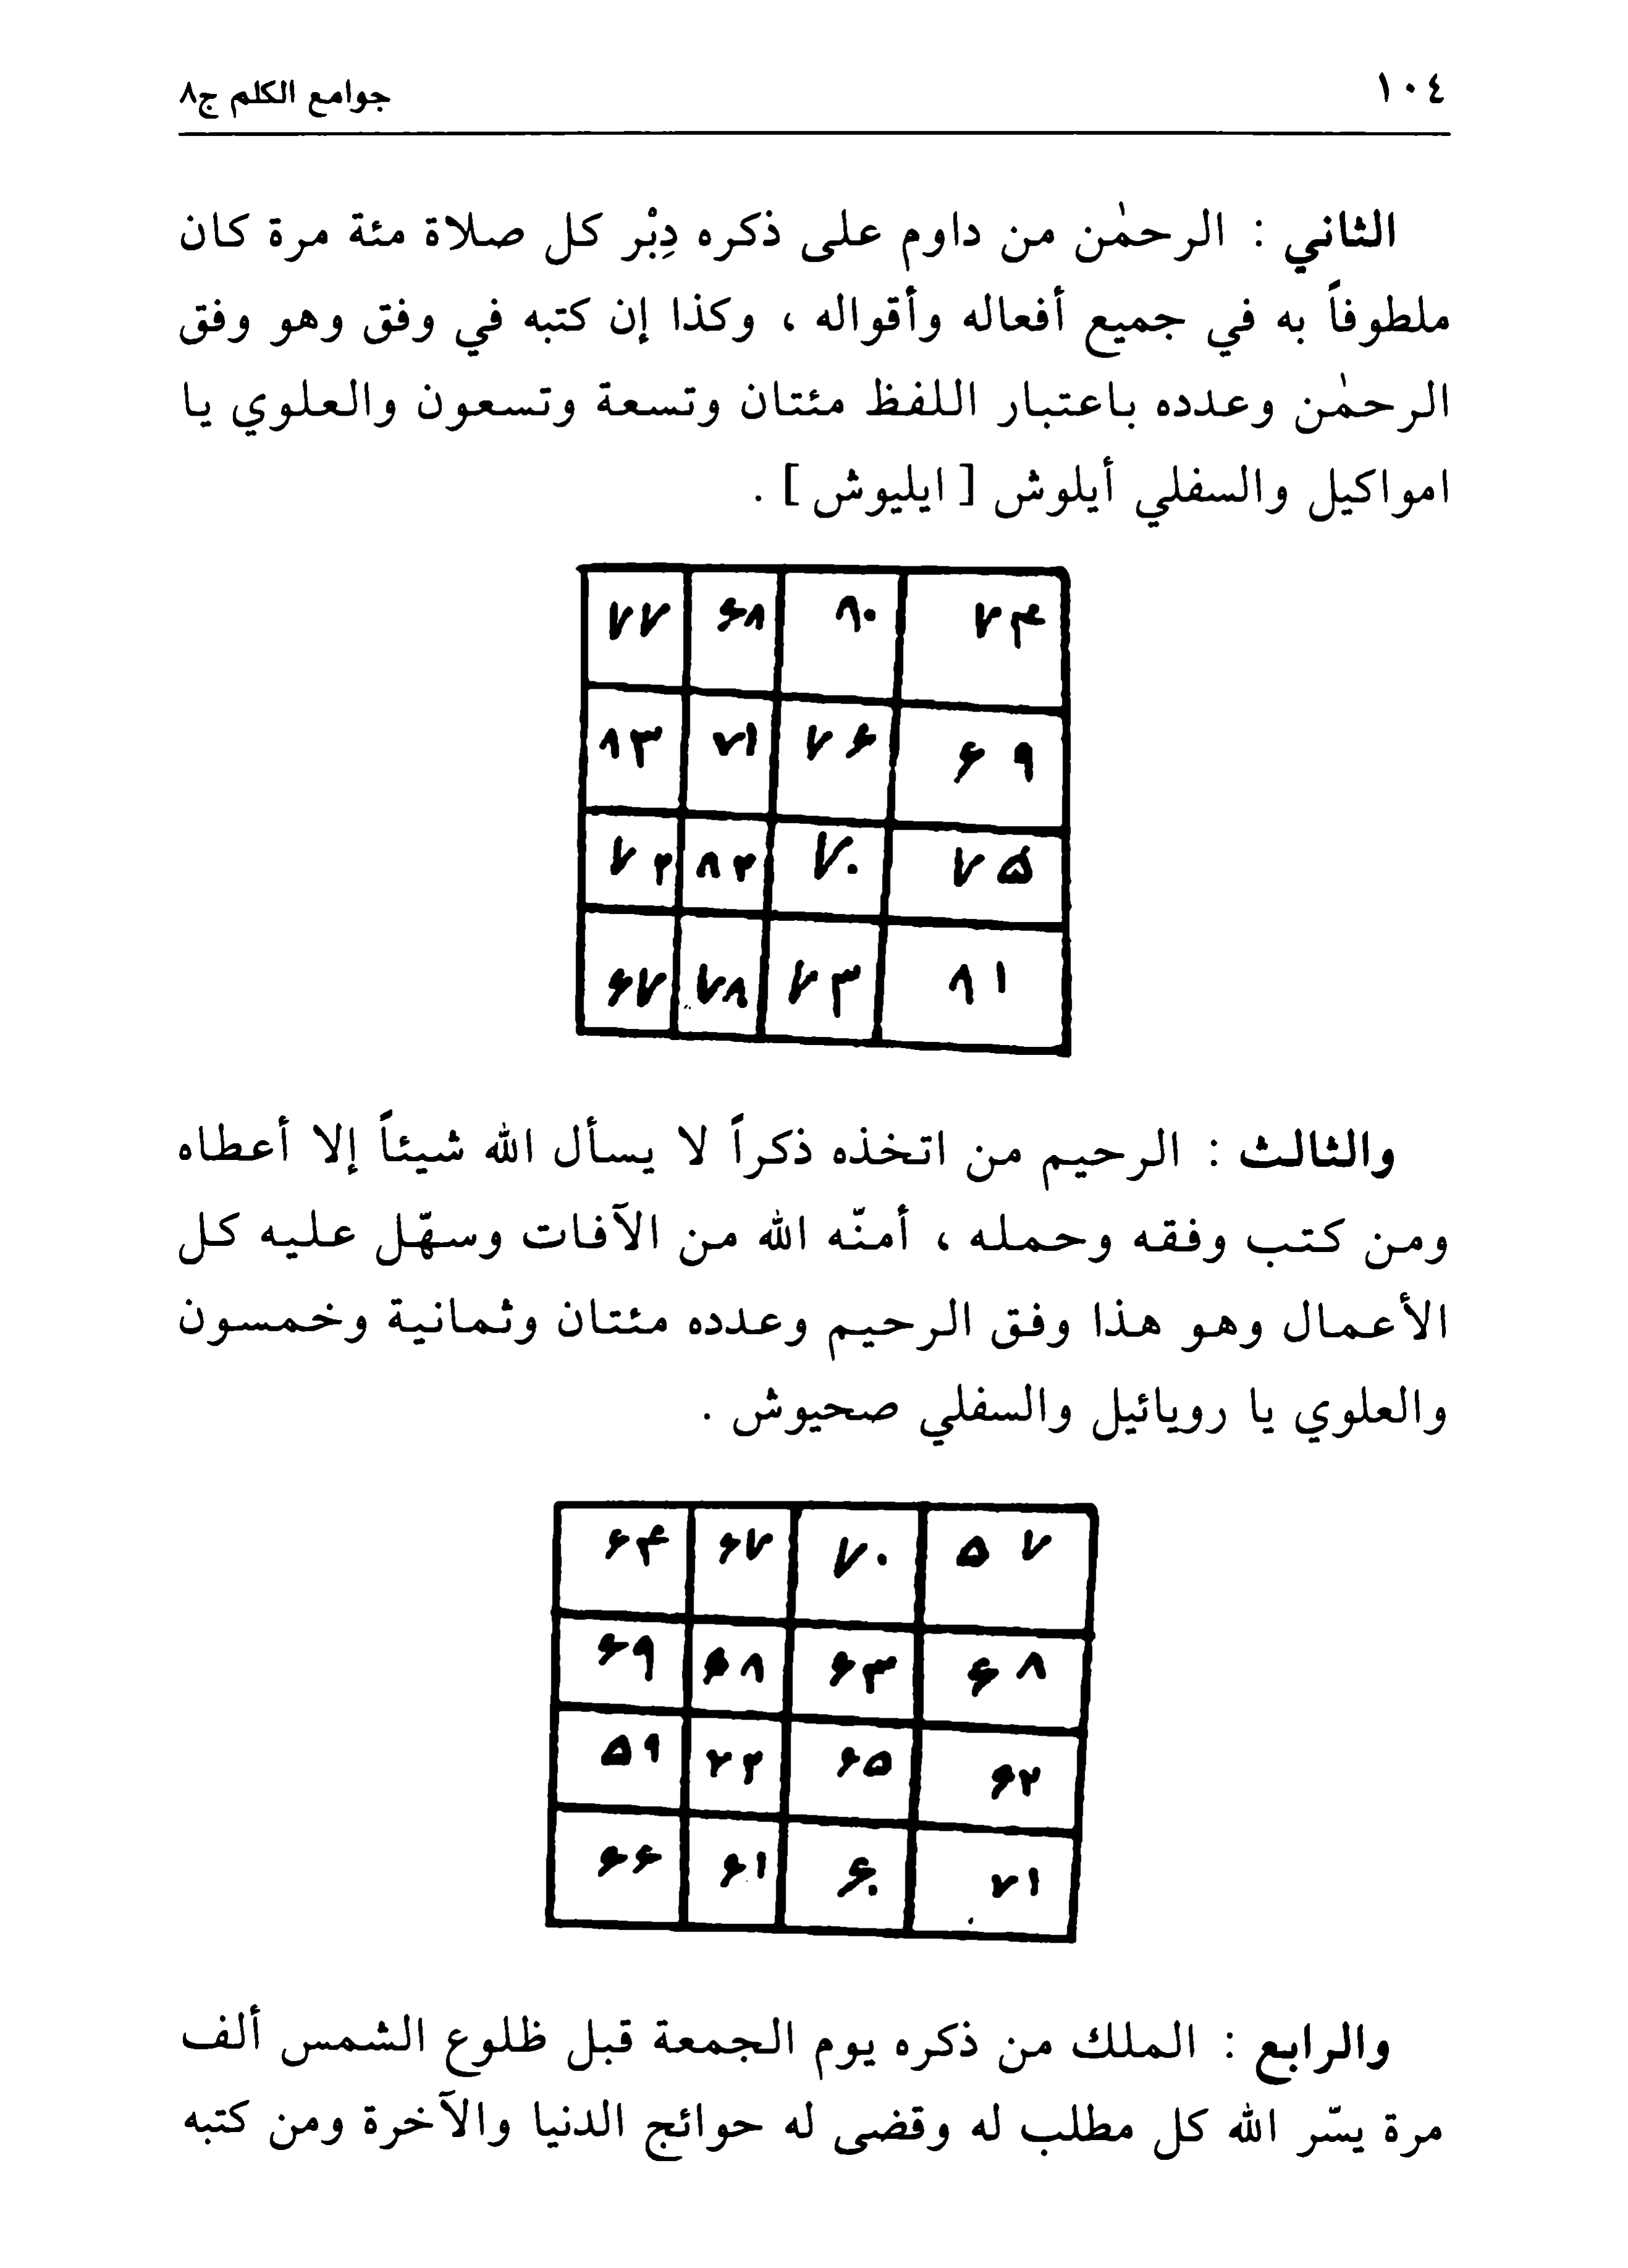 ١٠٤ جوامع الكلم ج٨
الثاني : الرحمٰن من داوم على ذكره دِبْر كل صلاة مئة مرة كان
ملطوفاً به في جميع أفعاله وأقواله ، وكذا إن كتبه في وفق وهو وفق
الرحمٰن وعدده باعتبار اللفظ مئتان وتسعة وتسعون والعلوي يا
امواكيل والسفلي أيلوش [ ايليوش ] .
۷۴ ۸۰ ۶۸ ۷۷
۶۹ ۷۶ ۷۱ ۸۳
۷۵ ۷۰ ۸۲ ۷۲
۸۱ ۷۳ ۷۸ ۶۷
والثالث : الرحيم من اتخذه ذكراً لا يسأل الله شيئاً إلا أعطاه
ومن كتب وفقه وحمله ، أمنّه الله من الآفات وسهّل عليه كل
الأعمال وهو هذا وفق الرحيم وعدده مئتان وثمانية وخمسون
والعلوي يا رويائيل والسفلي صحيوش .
۵۷ ۷۰ ۶۷ ۶۴
۶۸ ۶۳ ۶۸ ۶۹
۶۲ ۶۵ ۷۲ ۵۹
۷۱ ۶۰ ۶۱ ۶۶
والرابع : الملك من ذكره يوم الجمعة قبل ظلوع الشمس ألف
مرة يسّر الله كل مطلب له وقضى له حوائج الدنيا والآخرة ومن كتبه